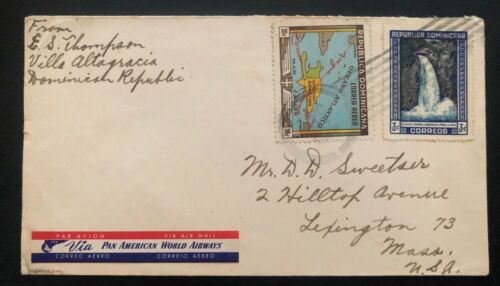 From
E. S. Thompson
Villa Altagracia
Dominican Republic
REPUBLICA DOMINICANA
CORREO AEREO
OCEANO ATLANTICO
MAR
REPUBLICA DOMINICANA
CORREOS
Mr. D. D. Sweetser
2 Hilltop Avenue
Lexington 73
Mass.
U.S.A.
PAR AVION VIA AIR MAIL
Via PAN AMERICAN WORLD AIRWAYS
CORREO AÉREO CORREIO AÉREO